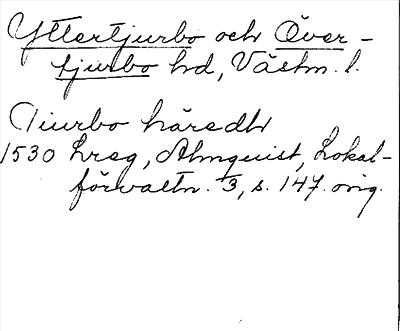 Yttertjurbo och Över-
tjurbo hd, Västm. l.
Tiurbo häredh
1530 Lreg, Almquist, Lokal-
förvaltn. 3, s. 147. orig.